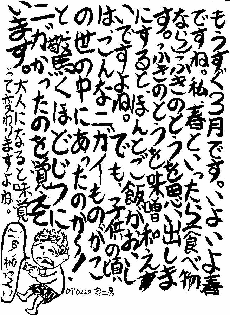 もうすぐ3月です。いよいよ春
ですね。私、春といったら食べ物
ならふきのとうを思い出しま
す。ふきのとうを味噌和え
にするとほんとご飯がおいし
いですよね。でも、子供の頃
は、こんなニガイものがこ
の世の中にあったのか〜!
と驚くほどじつに
ニガかったのを覚えて
います。
大人になると味覚
って変わりますよね。
090220